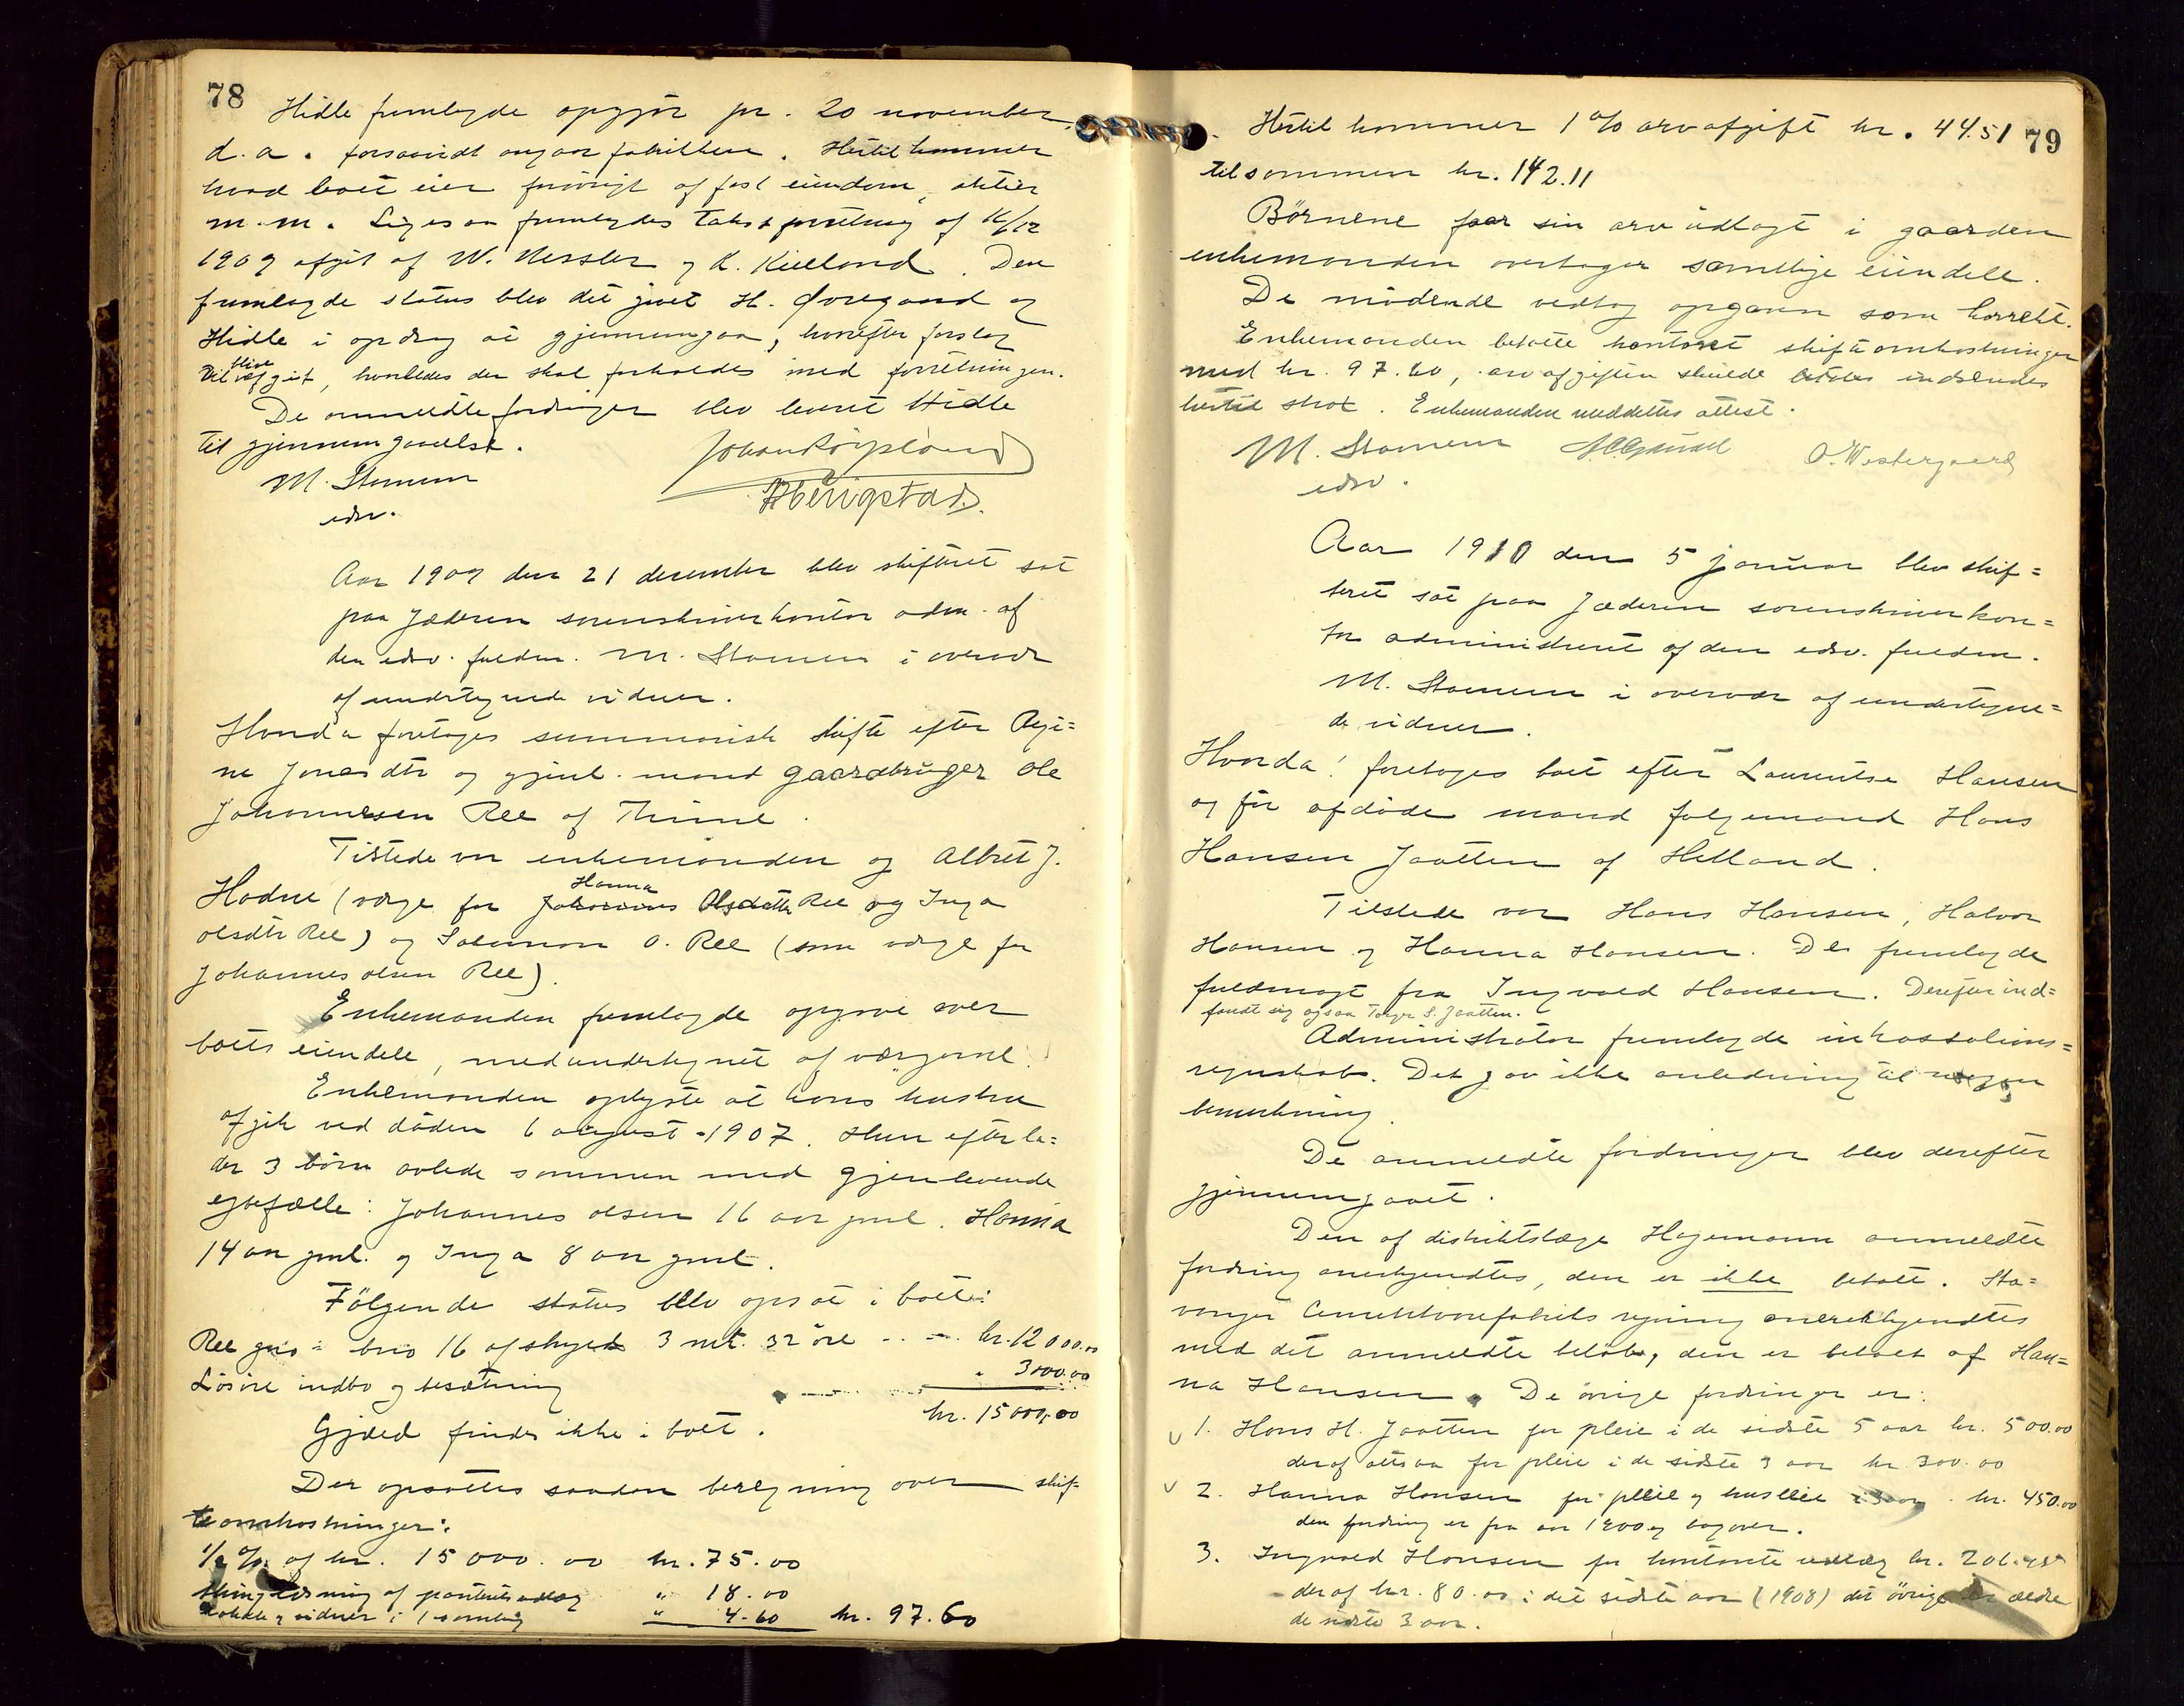 78
Hidle fremlagde opgjør pr. 20 november
d.a. forsaavidt angaar fabrikken. Hertil kommer
hvad boet eier forøvrigt af fast eiendom, aktier
m.m. Ligesaa fremlagdes takstforretning af 16/12
1909 afgit af W. Nessler og K. Kielland. Den
fremlagde status blev det givet H. Øvregaard og
Hidle i opdrag at gjennemgaa, hvorefter forslag
vil blive afgit, hvorledes der skal forholdes med forretningen.
De anmeldte fordringer blev leveret Hidle
til gjennemgaaelse.
M. Stamem
edsv.
Aar 1909 den 21 desember blev skifteret sat
paa Jæderen sorenskriverkontor adm. af
den edsv. fuldm. M. Stamem i overvær
af undertegnede vidner.
Hvorda foretoges summarisk skifte efter Regi=
ne Jonasdtr og gjenl. mand gaardbruger Ole
Johannesen Ree af Thime.
Tilstede var enkemanden og Albret J.
Hodne (værge for Johannes Hanna Olsdatter Ree og Inga
olsdtr Ree) og Salamon O. Ree (som værge for
Johannes olsen Ree).
Enkemanden fremlagde opgave over
boets eiendele, medundertegnet af værgerne.
Enkemanden oplyste at hans hustru
afgik ved døden 6 august 1907. Hun efterla=
der 3 børn avlede sammen med gjenlevende
egtefælle: Johannes olsen 16 aar gml. Hanna
14 aar gml. og Inga 8 aar gml.
Følgende status blev opsat i boet:
Ree gno = bno 16 af skyld 3 mk. 32 øre kr. 12000.00
Løsøre indbo og besætning " 3000.00
kr. 15000,00
Gjæld findes ikke i boet.
Der opsattes saadan beregning over skif=
teomkostninger:
1/2 % af kr. 15000.00 kr. 75.00
tinglæsning af panteutlæg " 18.00
Lokale og vidner i 1 samling " 4.60 kr. 97.60
79
Hertil kommer 1 % arvafgift kr. 44.51
tilsammen kr. 142.11
Børnene faar sin arv udlagt i gaarden
enkemanden overtager samtlige eiendele.
De mødende vedtog opgaven som korrekt.
Enkemanden betalte kontoret skifteomkostninger
med kr. 97.60, arvafgiften skulde betales indsendes
hertil strax. Enkemanden meddeltes attest.
M. Stamem O. Westergaard
edsv.
Aar 1910 den 5 januar blev skif=
teret sat paa Jæderen sorenskriverkon=
tor administreret af den edsv. fuldm.
M. Stamem i overvær af undertegne=
de vidner.
Hvorda! foretoges boet efter Laurentse Hansen
og før afdøde mand følgemand Hans
Hansen Jaatten af Hetland.
Tilstede var Hans Hansen, Halvor
Hansen og Hanna Hansen. Der fremlagde
fuldmagt fra Ingvald Hansen. Derefter ind=
fandt sig ogsaa Torger S. Jaatten.
Administrator fremlagde inkassations=
regnskab. Det gav ikke anledning til nogen
bemerkning.
De anmeldte fordringer blev derefter
gjennemgaaet.
Den af distriktslæge Hagemann anmeldte
fordring anerkjendtes, den er ikke betalt. Sta=
vanger Cementvarefabriks regning anerkjendtes
med det anmeldte beløb, den er betalt af Han=
na Hansen. De øvrige fordringer er:
1. Hans H. Jaatten for pleie i de sidste 5 aar kr. 500.00
deraf altsaa for pleie i de sidste 3 aar kr 300.00
2. Hanna Hansen for pleie og husleie i 3 aar kr. 450.00
den fordring er fra aar 1900 og bagover.
3. Ingvald Hansen for kontante utlæg kr.
deraf kr. 80.00 i det sidste aar (1908) det øvrige er ældre
de sidste 3 aar.